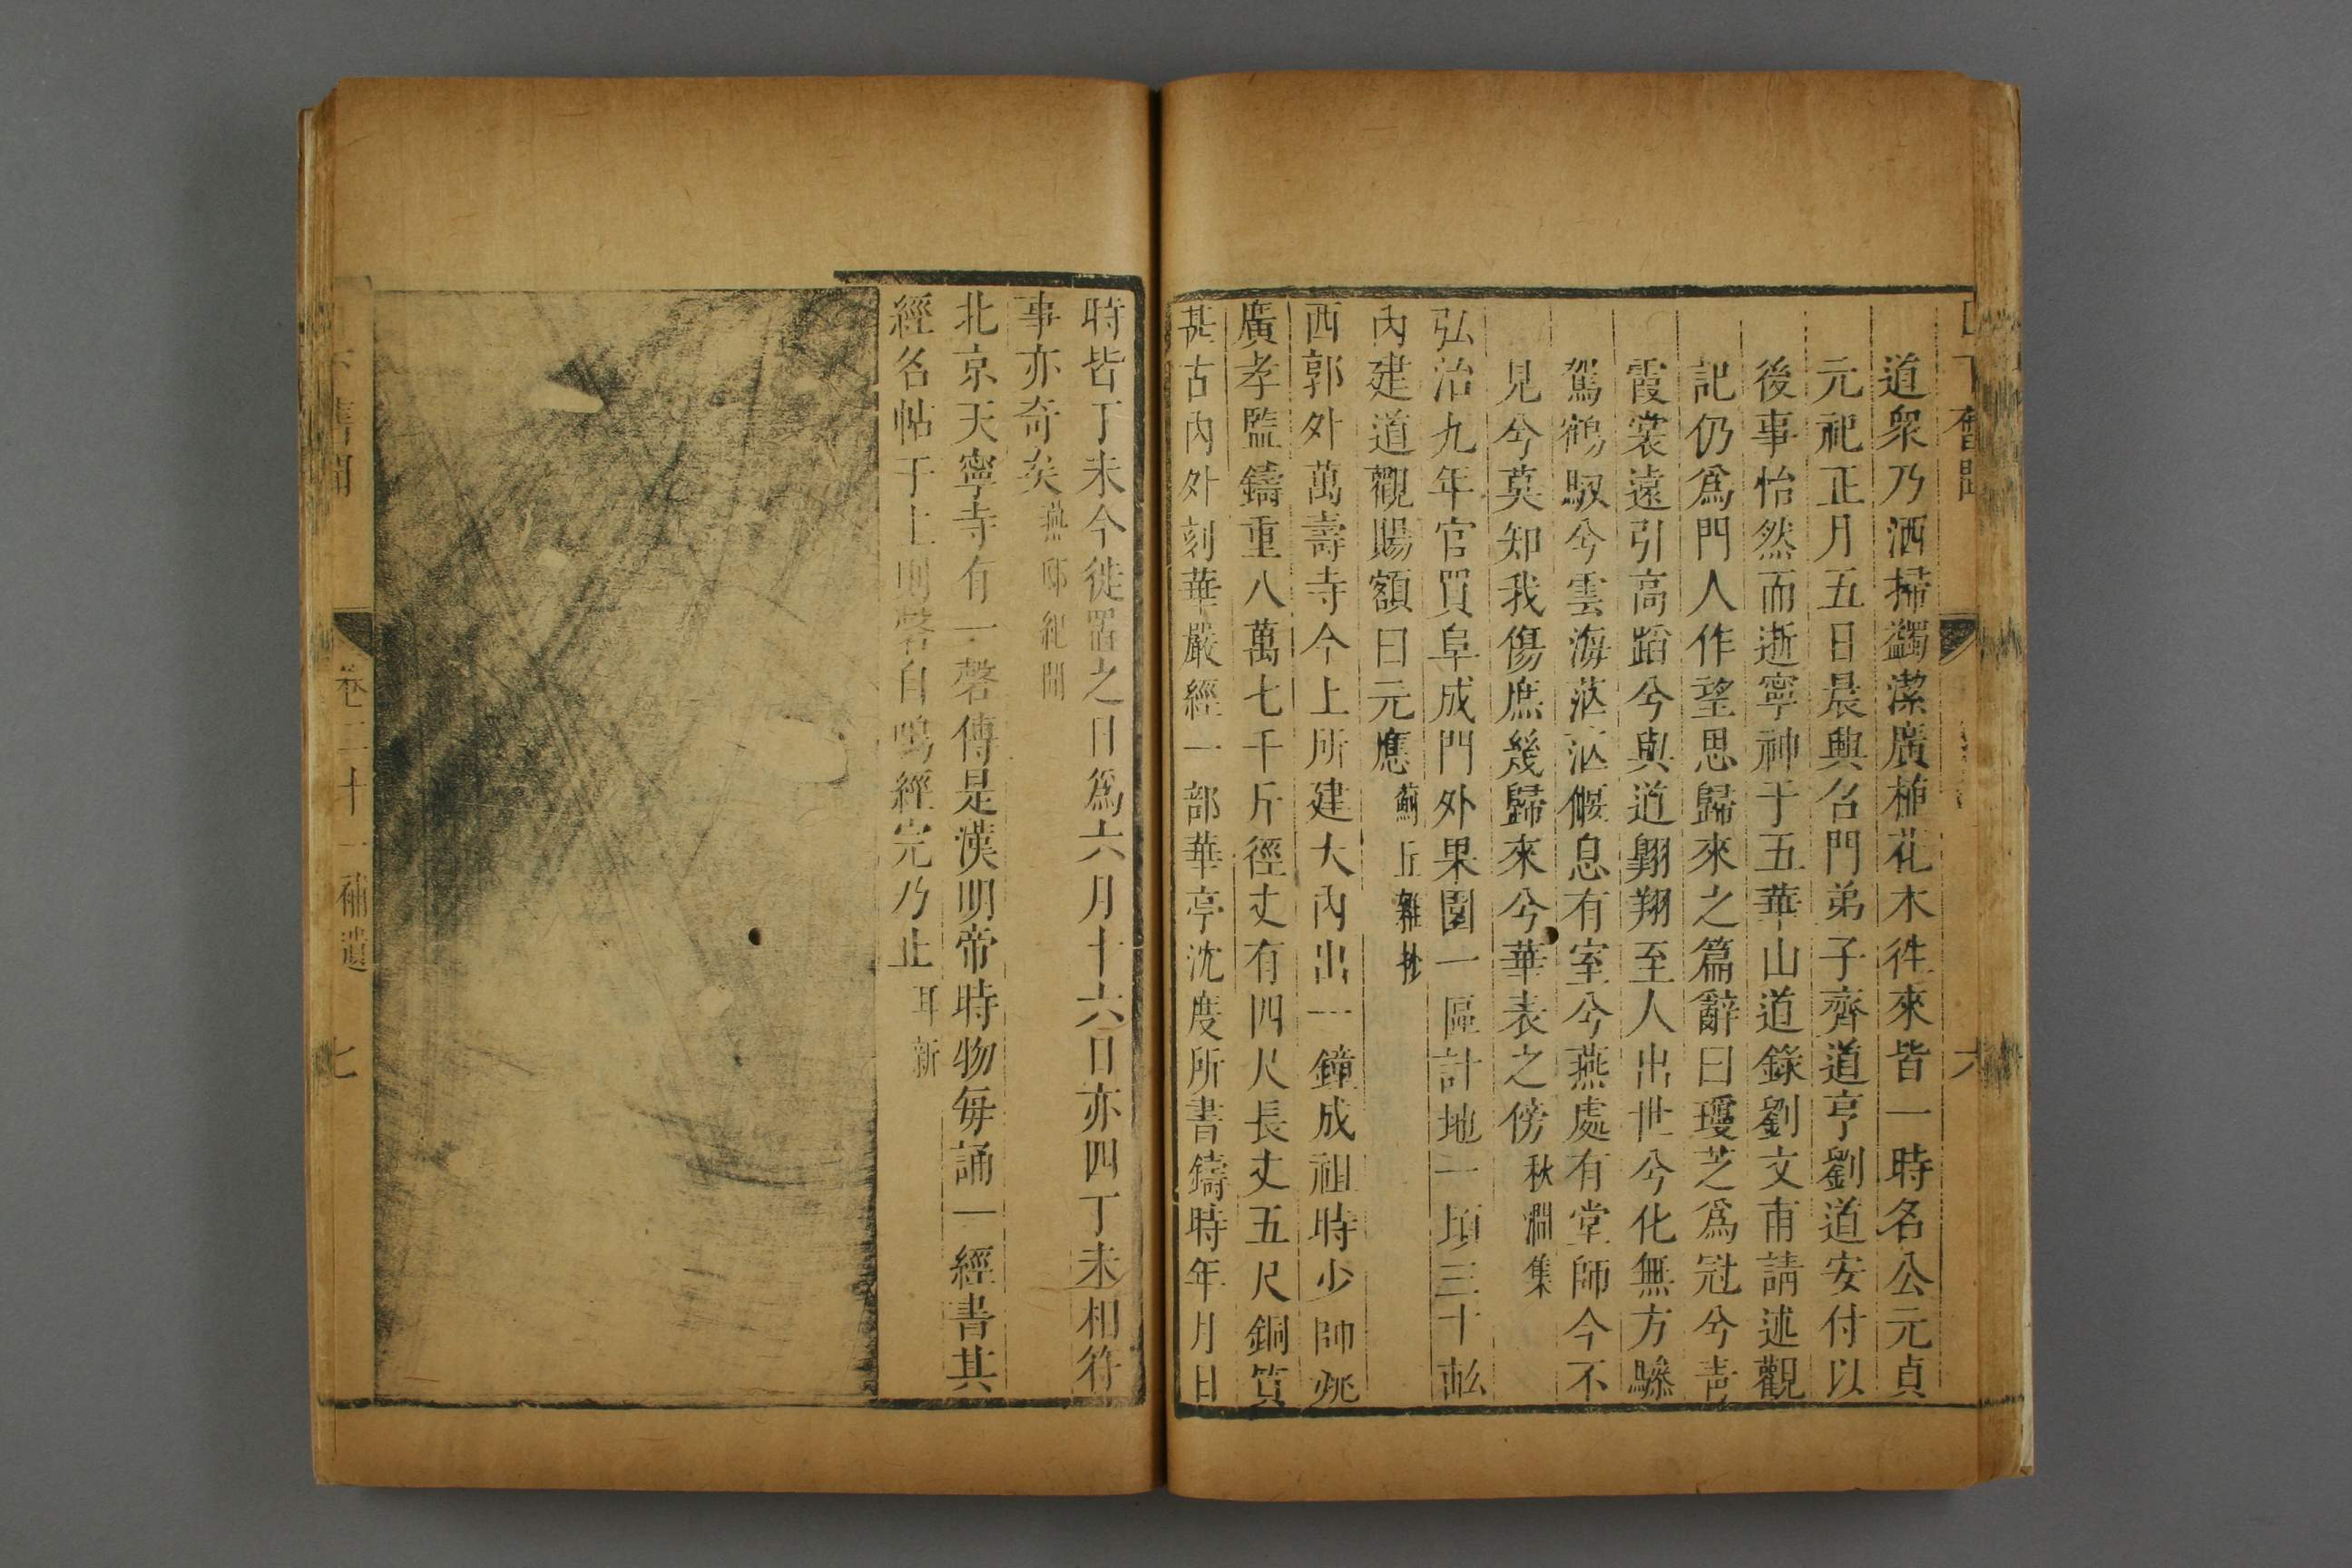 日下舊聞
六
道衆乃洒掃蠲潔廣植花木徃來皆一時名公元貞
元祀正月五日晨興召門弟子齊道亨劉道安付以
後事怡然而逝寧神于五華山道錄劉文甫請述觀
記仍爲門人作望思歸來之篇辭曰瓊芝爲冠兮靑
霞裳遠引高蹈兮與道翺翔至人出世兮化無方驂
駕鶴馭兮雲海茫茫偃息有室兮燕處有堂師今不
見兮莫知我傷庶幾歸來兮華表之傍 秋澗集
弘治九年官買阜成門外果園一區計地一頃三十畝
內建道觀賜額曰元應 薊丘雜抄
西郭外萬壽寺今上所建大內出一鐘成祖時少師姚
廣孝監鑄重八萬七千斤徑丈有四尺長丈五尺銅質
甚古內外刻華嚴經一部華亭沈度所書鑄時年月日
時皆丁未今徙置之日爲六月十六日亦四丁未相符
事亦奇矣 燕邸紀聞
北京天寧寺有一磬傳是漢明帝時物每誦一經書其
經名帖于上則磬自鳴經完乃止 耳新
舊聞
卷二十一補遺
七